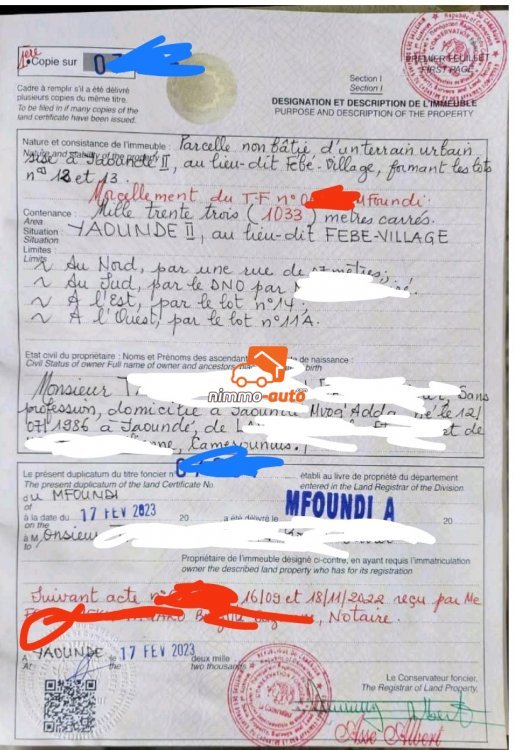 1ère
Copie sur 0
Cadre à remplir s'il a été délivré
plusieurs copies du même titre.
To be filed in if many copies of the
land certificate have been issued.
PREMIER FEUILLET
FIRST PAGE
Section I
Section I
DESIGNATION ET DESCRIPTION DE L'IMMEUBLE
PURPOSE AND DESCRIPTION OF THE PROPERTY
Nature et consistance de l'immeuble : Parcelle non bâtie d'un terrain urbain
sise à Yaoundé II, au lieu-dit Febé-Village, formant les lots
nos 12 et 13.
Morcellement du T.F n° 0 Mfoundi.
Contenance : Mille trente trois (1033) mètres carrés.
Area
Situation : YAOUNDE II, au lieu-dit FEBE-VILLAGE
Situation
Limites :
Limits
~ Au Nord, par une rue de mètres;
~ Au Sud, par le DNO par
~ A l'Est, par le lot n°14;
~ A l'Ouest, par le lot n°11A.
Etat civil du propriétaire : Noms et Prénoms des ascendants de naissance :
Civil Status of owner Full name of owner and ancestors, birth
nimmo-auto
Monsieur Sans
profession, domicilié à Yaoundé Mvog Adda, né le 12/
07/1986 à Yaoundé, de et de
Camerounais.
Le présent duplicatum du titre foncier n° 0 établi au livre de propriété du département
The present duplicatum of the land Certificate No entered in the Land Registrar of the Division
du MFOUNDI MFOUNDI A
of
à la date du 17 FEV 2023 20 a été délivré le 20
on the
à Monsieur
to
Propriétaire de l'immeuble désigné ci-contre, en ayant requis l'immatriculation
owner the described land property who has for its registration
Suivant acte n° 16/09 et 18/11/2022 reçu par Me
, Notaire.
A YAOUNDE le 17 FEV 2023 deux mille
At the two thousands
Le Conservateur foncier,
The Registrar of Land Property,
Asse Albert